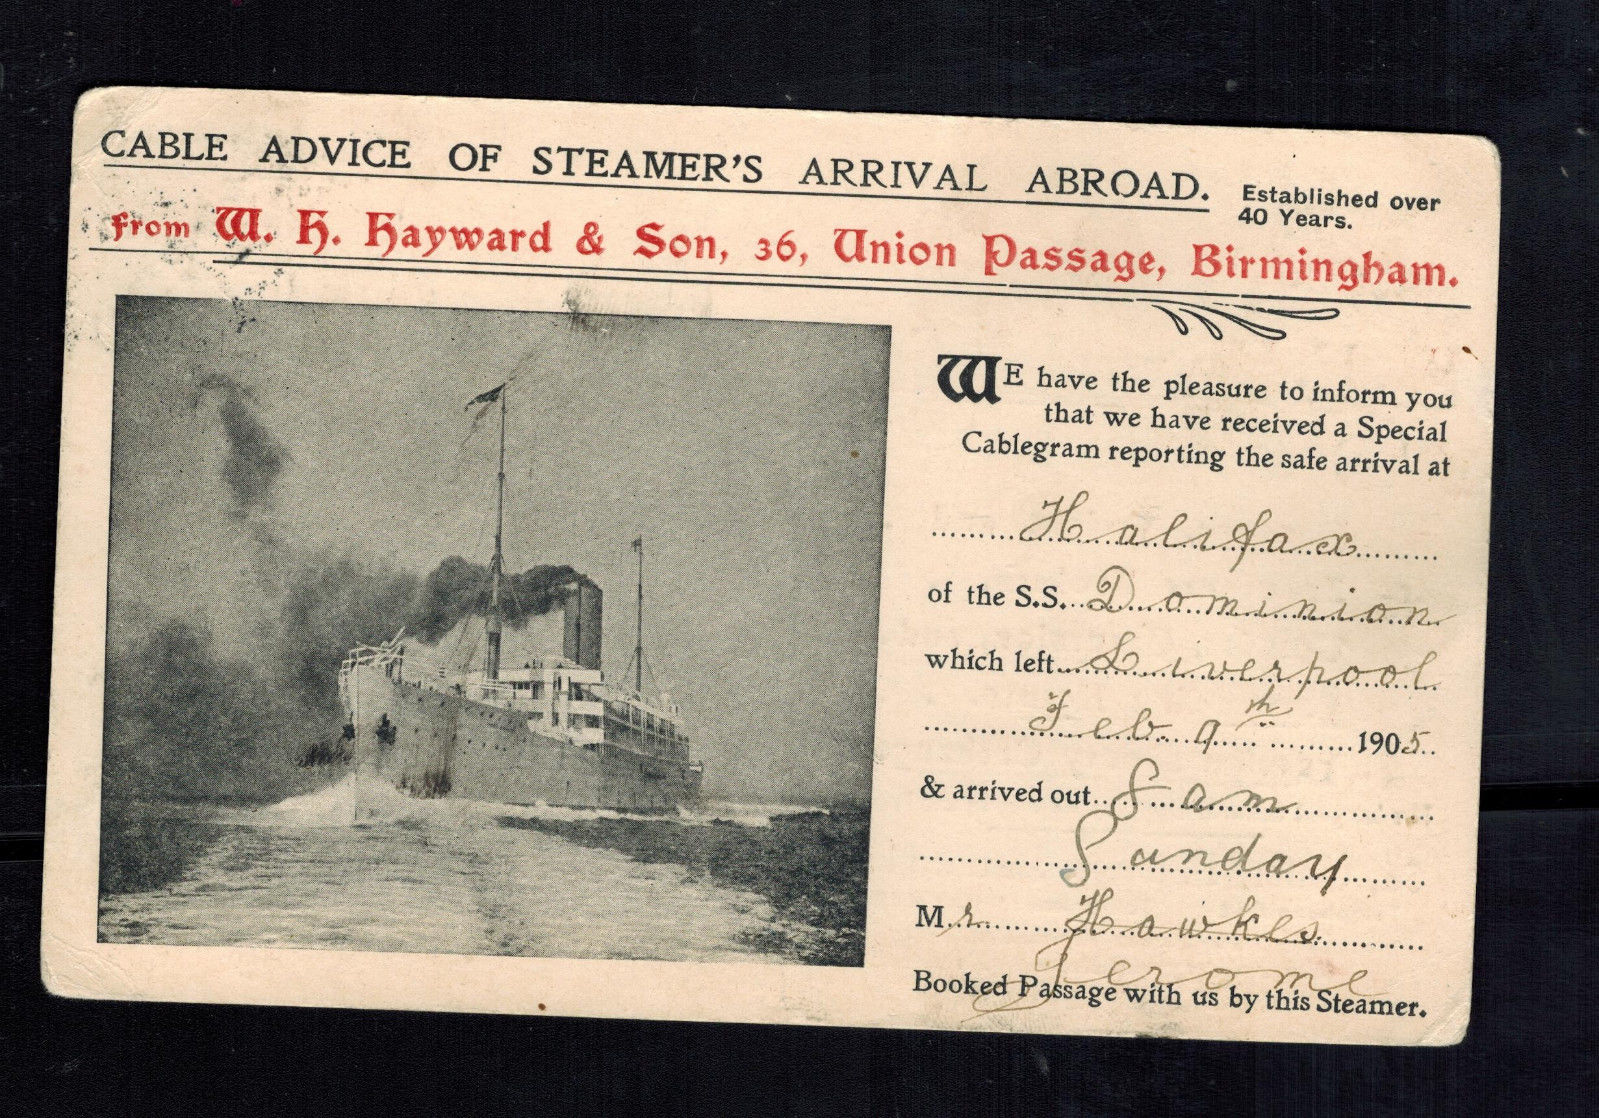 CABLE ADVICE OF STEAMER'S ARRIVAL ABROAD.
Established over
40 Years.
from W. H. Hayward & Son, 36, Union Passage, Birmingham.
WE have the pleasure to inform you
that we have received a Special
Cablegram reporting the safe arrival at
Halifax
of the S.S. Dominion
which left Liverpool
Feb 9th 1905
& arrived out 8 am
Sunday
Mr Hawkes
Jerome
Booked Passage with us by this Steamer.